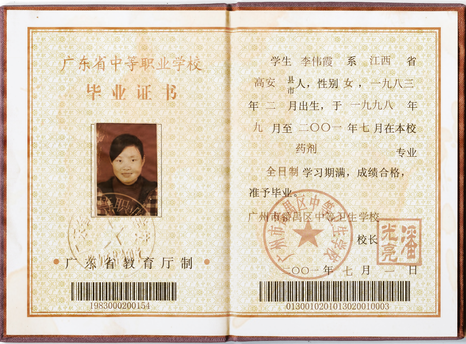 广东省中等职业学校
毕业证书
广东省教育厅制
1983000200154
学生 李伟霞 系 江西 省
高安 县市 人，性别 女，一九八三
年 二 月出生，于 一九九八 年
九 月至 二〇〇一 年 七 月在本校
药剂 专业
全日制 学习期满，成绩合格，
准予毕业。
广州市番禺区中等卫生学校
校长
二〇〇一 年 七 月 一 日
0130010201013020010003